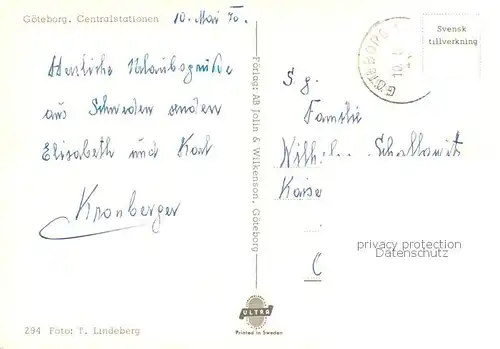 Göteborg. Centralstationen
10. Mai 70.
Herzliche Urlaubsgrüße
aus Schweden senden
Elisabeth und Karl
Kronberger
Förlag: AB Jolin & Wilkenson, Göteborg
GÖTEBORG
10.
Svensk
tillverkning
S. g.
Familie
Kaise
privacy protection
DMCars.de
ULTRA
Printed in Sweden
294 Foto: T. Lindeberg